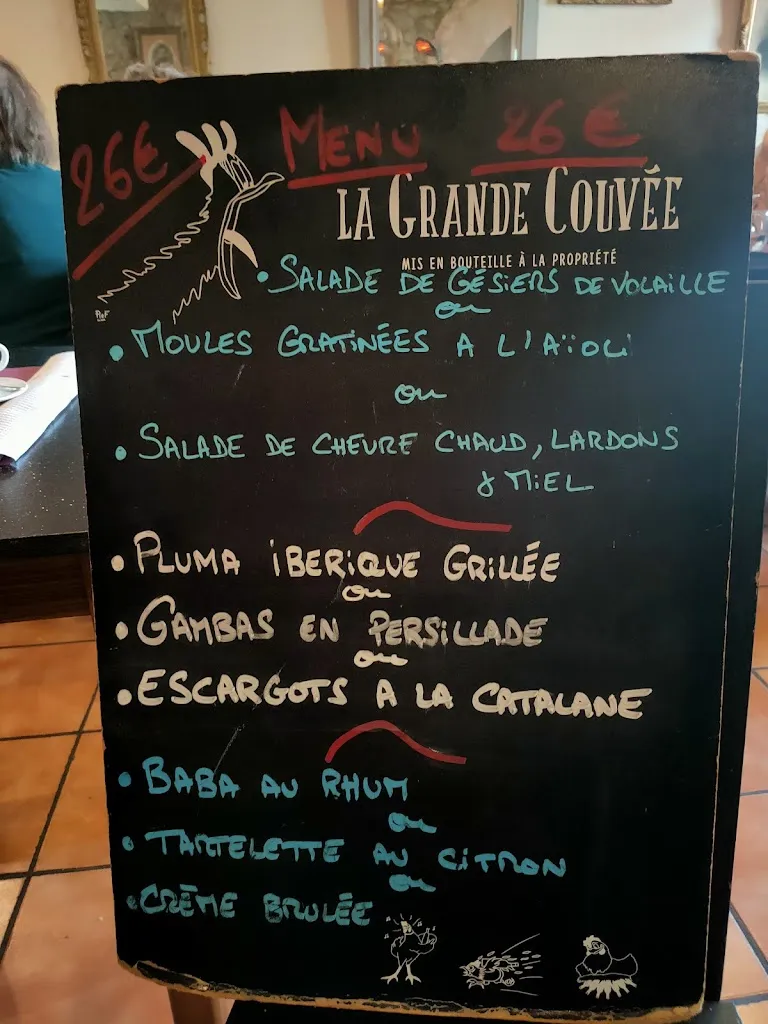 26€ MENU 26€
LA GRANDE COUVÉE
MIS EN BOUTEILLE À LA PROPRIÉTÉ
• SALADE DE GÉSIERS DE VOLAILLE
ou
• MOULES GRATINÉES A L'AÏOLI
ou
• SALADE DE CHEVRE CHAUD, LARDONS
& MIEL
• PLUMA IBERIQUE GRILLÉE
ou
• GAMBAS EN PERSILLADE
ou
• ESCARGOTS A LA CATALANE
• BABA AU RHUM
ou
• TARTELETTE AU CITRON
ou
• CRÈME BRULÉE